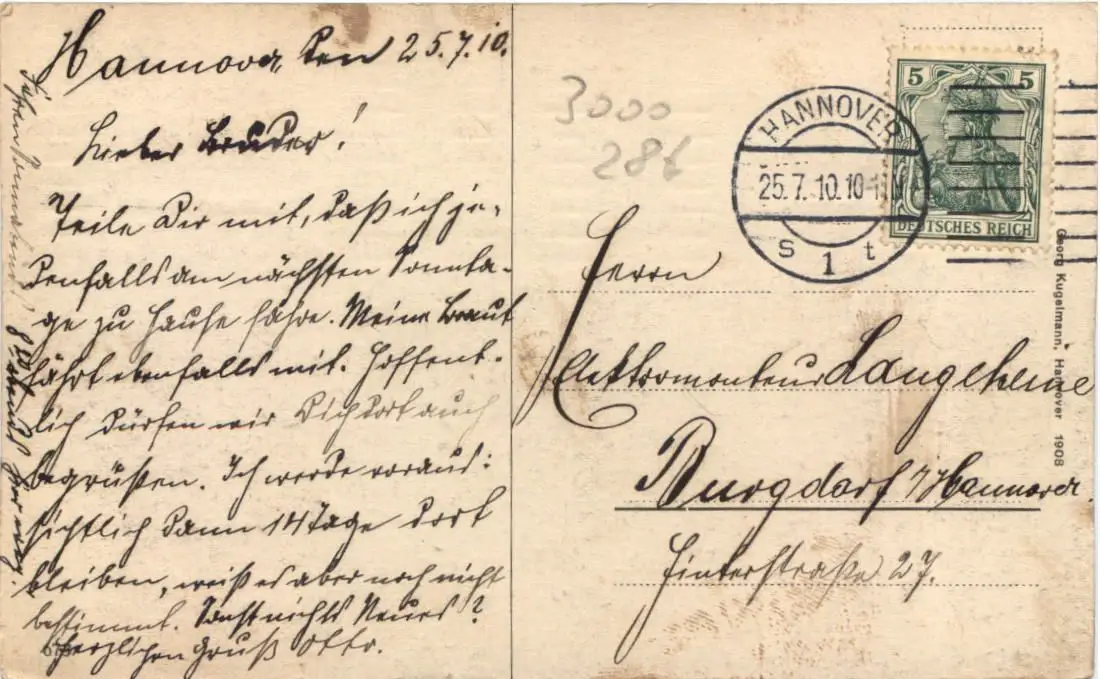 Hannover, den 25.7.10.
Lieber Bruder!
Teile Dir mit, daß ich je-
denfalls am nächsten Sonnta-
ge zu Hause fahre. Meine Braut
fährt ebenfalls mit. Hoffent-
lich dürfen wir Dich dort auch
begrüßen. Ich werde voraus-
sichtlich dann 14 Tage dort
bleiben, weiß es aber noch nicht
bestimmt. Sonst nichts Neues?
Herzlichen Gruß Otto.
Sonnabend
abends hier weg.
3000
286
HANNOVER
25.7.10.10-11
S 1 t
5 5
DEUTSCHES REICH
Herrn
Elektromonteur Langeheine
Burgdorf i/Hannover.
Hinterstraße 27.
Georg Kugelmann, Hannover 1908